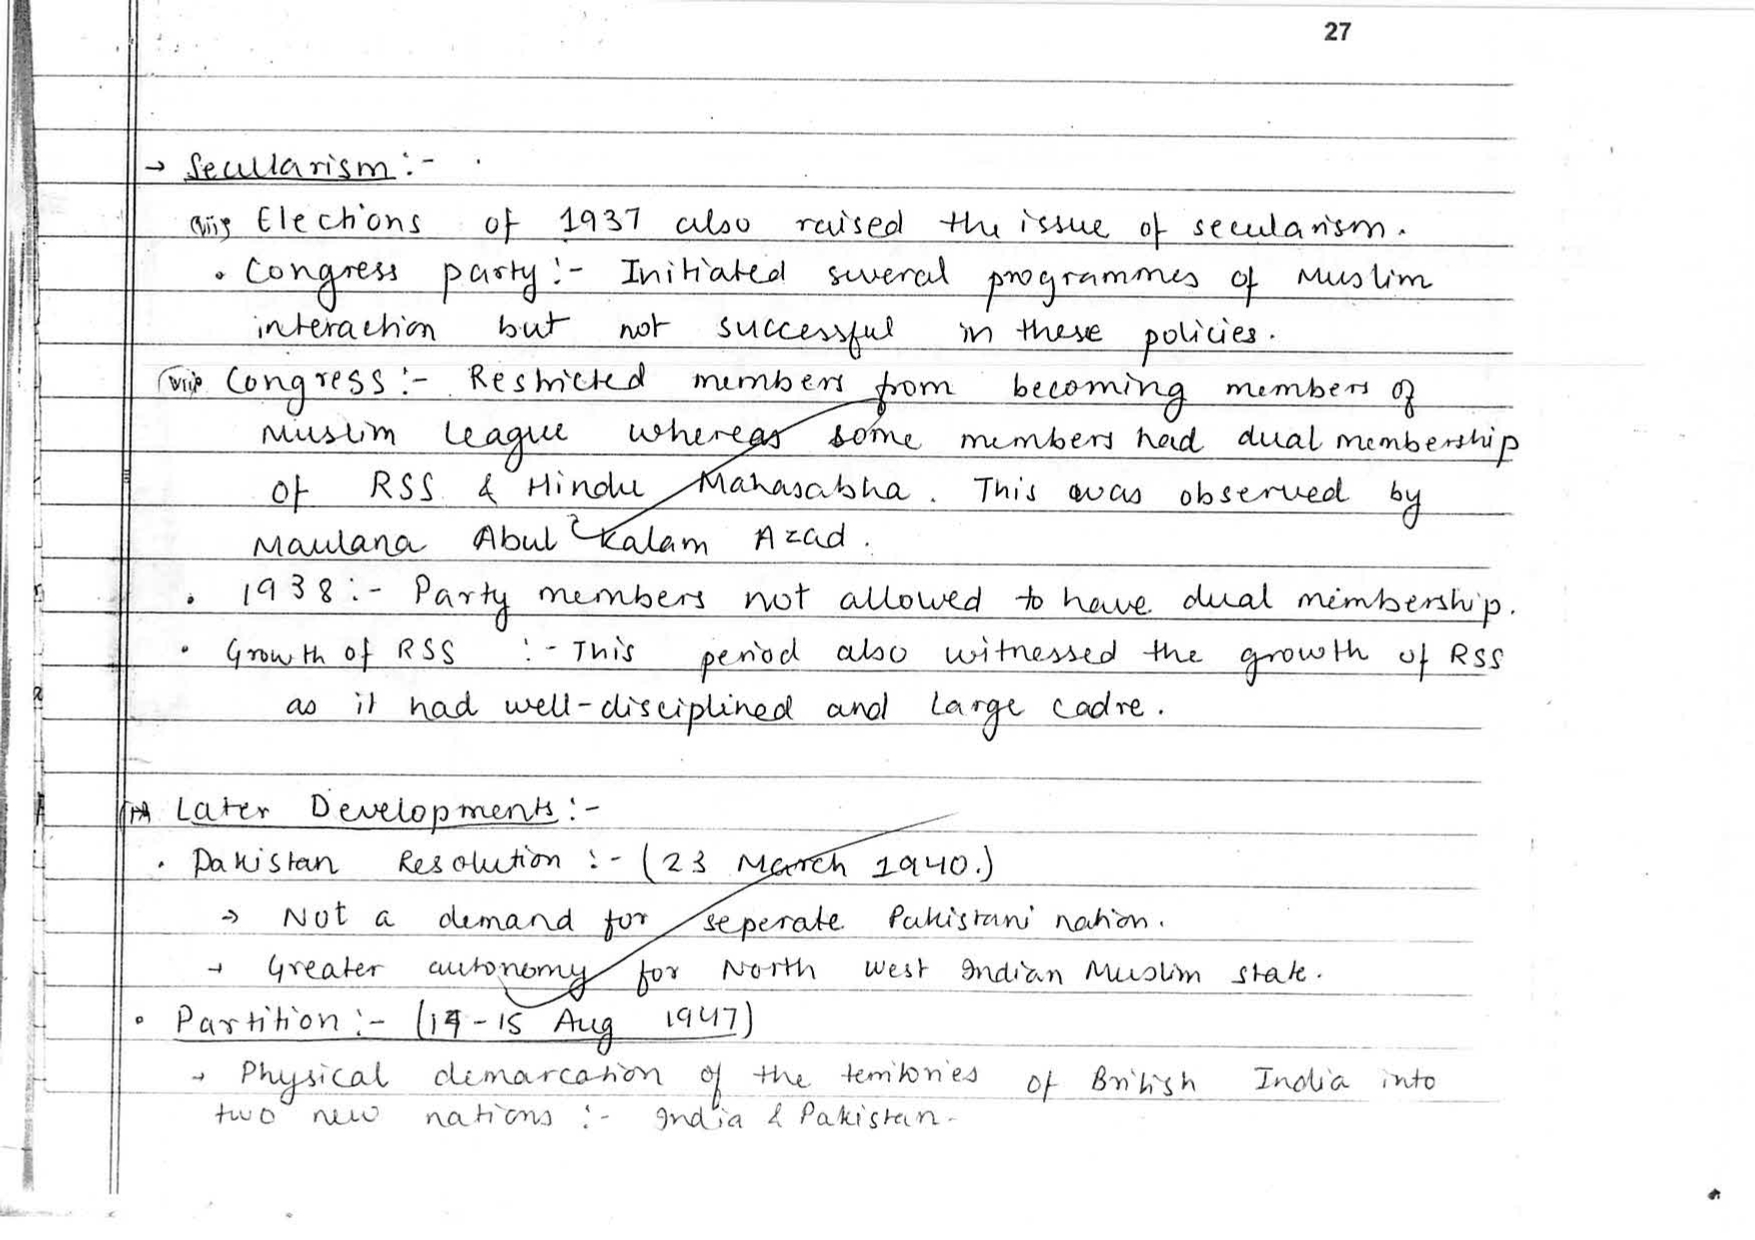 27
→ Secularism:-
(vii) Elections of 1937 also raised the issue of secularism.
• Congress party:- Initiated several programmes of Muslim
interaction but not successful in these policies.
(viii) Congress:- Restricted members from becoming members of
Muslim League whereas some members had dual membership
of RSS & Hindu Mahasabha. This was observed by
Maulana Abul Kalam Azad.
• 1938:- Party members not allowed to have dual membership.
• Growth of RSS :- This period also witnessed the growth of RSS
as it had well-disciplined and large cadre.
Later Developments:-
• Pakistan Resolution :- (23 March 1940.)
→ Not a demand for seperate Pakistani nation.
→ Greater autonomy for North West Indian Muslim state.
• Partition:- (14-15 Aug 1947)
→ Physical demarcation of the territories of British India into
two new nations :- India & Pakistan.